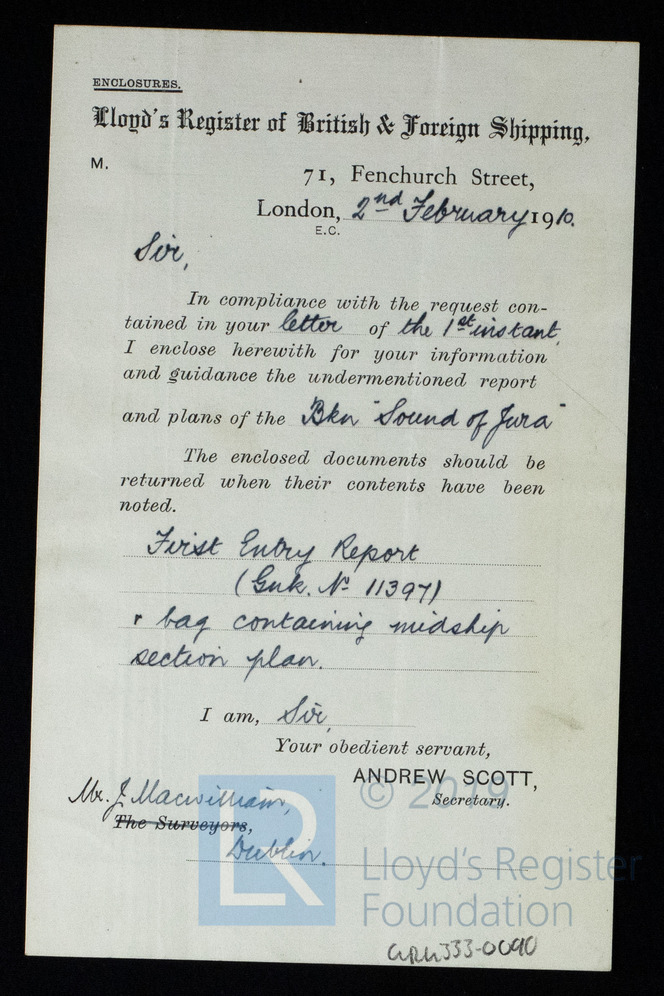 ENCLOSURES.
Lloyd's Register of British & Foreign Shipping.
M.
71, Fenchurch Street,
London, 2nd February 1910.
E.C.
Sir,
In compliance with the request con-
tained in your letter of the 1st instant,
I enclose herewith for your information
and guidance the undermentioned report
and plans of the Bkn "Sound of Jura"
The enclosed documents should be
returned when their contents have been
noted.
First Entry Report
(Gnk. No 11397)
r bag containing midship
section plan.
I am, Sir,
Your obedient servant,
ANDREW SCOTT,
Secretary.
Mr. J. Macwilliam,
The Surveyors,
Dublin.
LR
© 2019
Lloyd's Register
Foundation
GRK333-0090